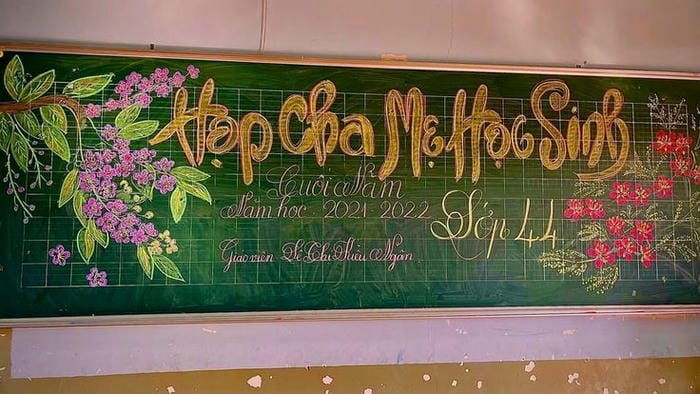 Họp Cha Mẹ Học Sinh
Cuối Năm
Năm học: 2021 2022
Lớp 44
Giáo viên Lê Thị Thiều Ngân